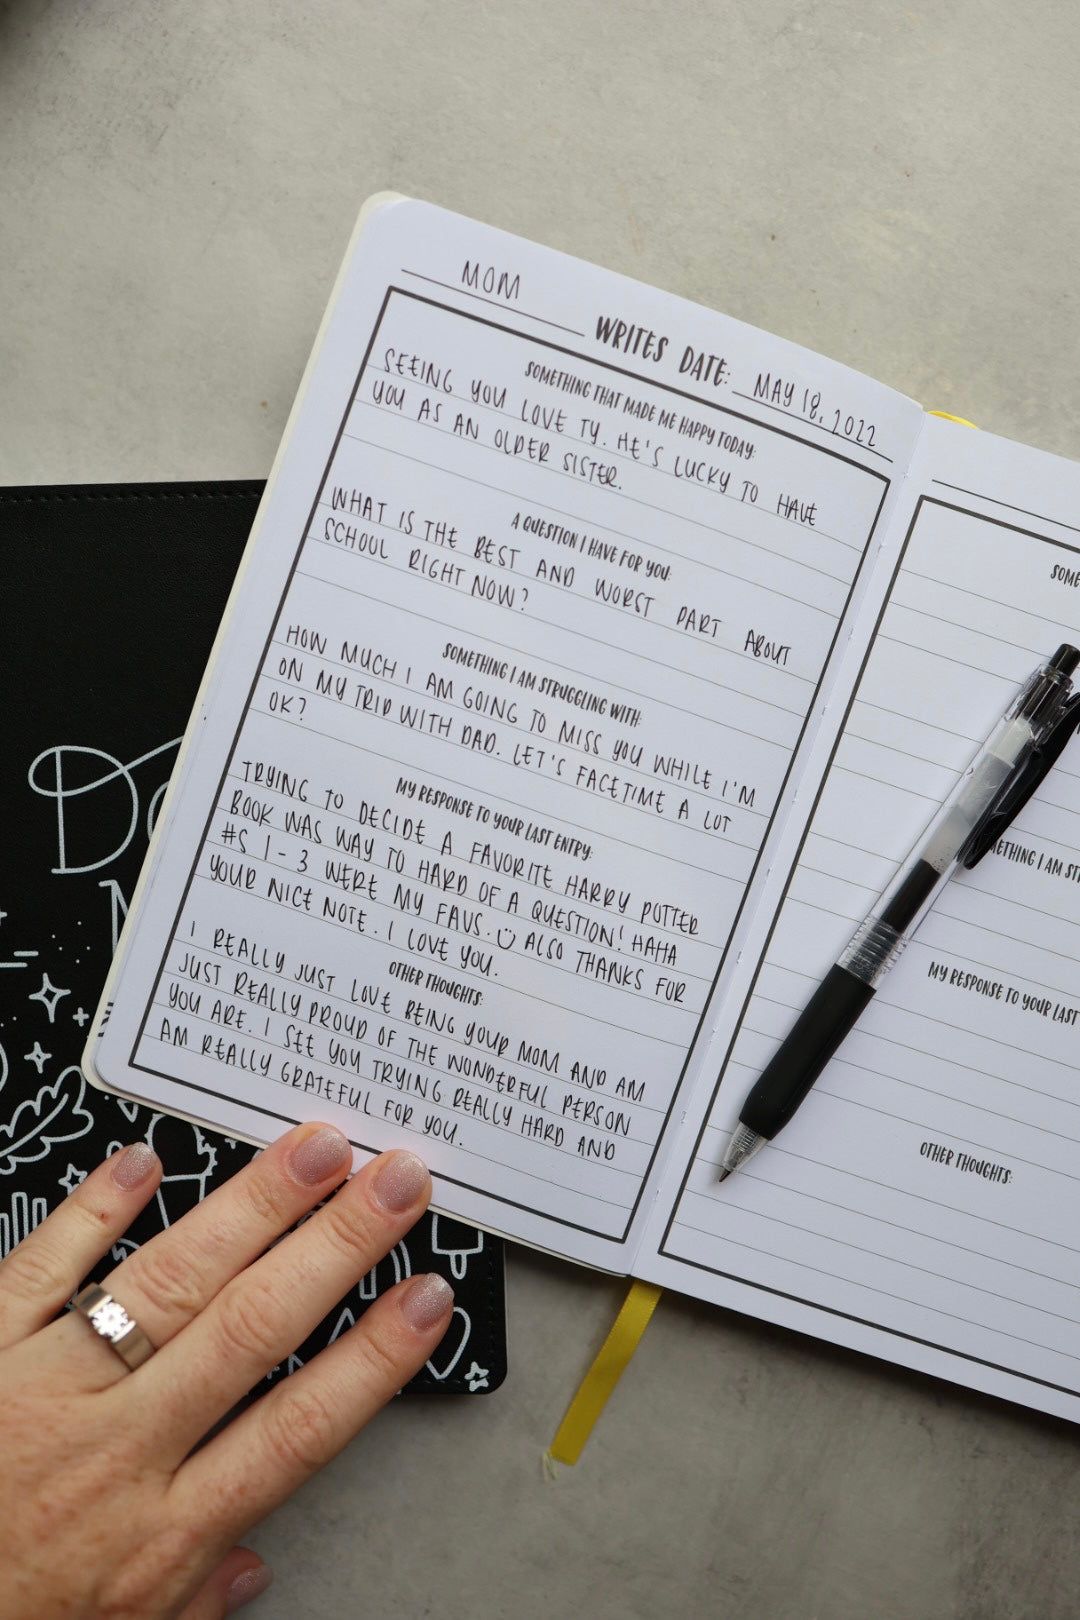 MOM WRITES DATE: MAY 18, 2022
SOMETHING THAT MADE ME HAPPY TODAY:
SEEING YOU LOVE TY. HE'S LUCKY TO HAVE
YOU AS AN OLDER SISTER.
A QUESTION I HAVE FOR YOU:
WHAT IS THE BEST AND WORST PART ABOUT
SCHOOL RIGHT NOW?
SOMETHING I AM STRUGGLING WITH:
HOW MUCH I AM GOING TO MISS YOU WHILE I'M
ON MY TRIP WITH DAD. LET'S FACETIME A LOT
OK?
MY RESPONSE TO YOUR LAST ENTRY:
TRYING TO DECIDE A FAVORITE HARRY POTTER
BOOK WAS WAY TO HARD OF A QUESTION! HAHA
#S 1-3 WERE MY FAVS. ☺ ALSO THANKS FOR
YOUR NICE NOTE. I LOVE YOU.
OTHER THOUGHTS:
I REALLY JUST LOVE BEING YOUR MOM AND AM
JUST REALLY PROUD OF THE WONDERFUL PERSON
YOU ARE. I SEE YOU TRYING REALLY HARD AND
AM REALLY GRATEFUL FOR YOU.
MY RESPONSE TO YOUR LAST
OTHER THOUGHTS: